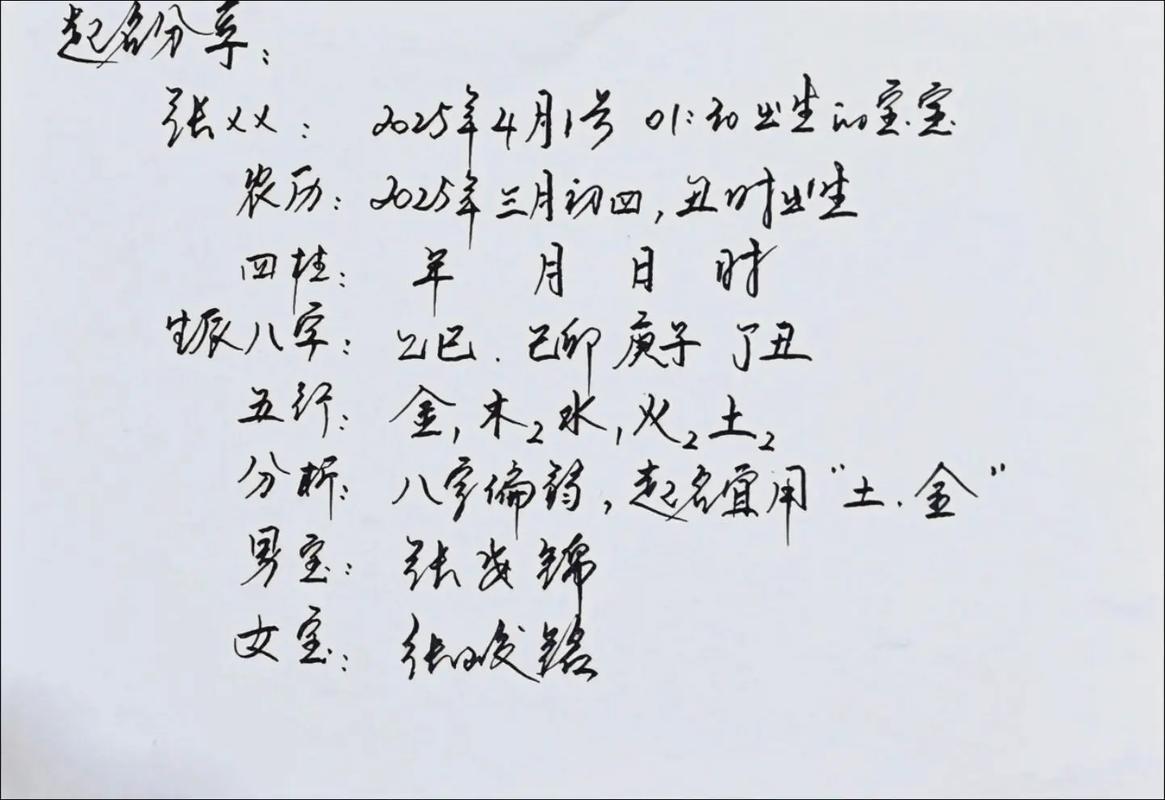 起名分享:
张XX: 2025年4月1号 01:30出生的宝宝
农历: 2025年三月初四,丑时出生
四柱: 年 月 日 时
生辰八字: 乙巳. 己卯 庚子 丁丑
五行: 金1木2水1火2土2
分析: 八字偏弱,起名宜用"土.金"
男宝: 张 锦
女宝: 张峻铭